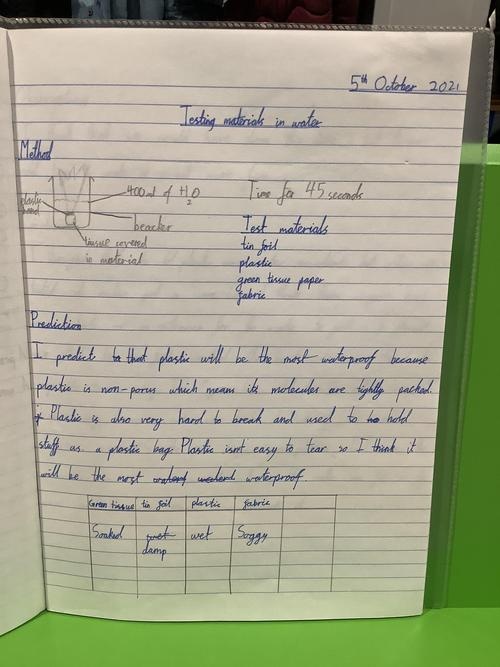 5th October 2021
Testing materials in water
Method
400ml of H2O
Time for 45 seconds
plastic
beacker
tissue covered
in material
Test materials
tin foil
plastic
green tissue paper
fabric
Prediction
I predict that plastic will be the most waterproof because
plastic is non-porus which means its molecules are tightly packed.
Plastic is also very hard to break and used to hold
stuff as a plastic bag. Plastic isnt easy to tear so I think it
will be the most waterproof.
Green tissue tin foil plastic fabric
Soaked wet wet Soggy
damp